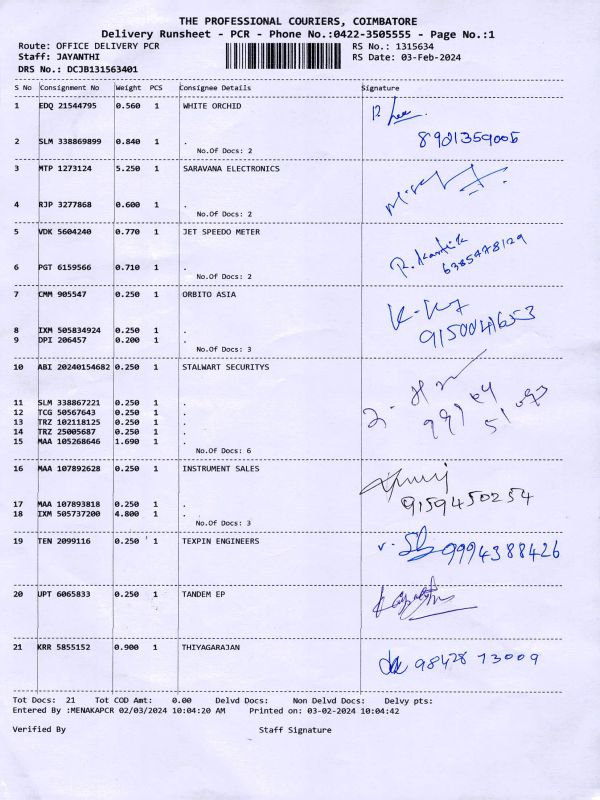 THE PROFESSIONAL COURIERS, COIMBATORE
Delivery Runsheet - PCR - Phone No.:0422-3505555 - Page No.:1
Route: OFFICE DELIVERY PCR RS No.: 1315634
Staff: JAYANTHI RS Date: 03-Feb-2024
DRS No.: DCJB131563401
S No Consignment No Weight PCS Consignee Details Signature
1 EDQ 21544795 0.560 1 WHITE ORCHID
2 SLM 338869899 0.840 1 . 8921359005
No.Of Docs: 2
3 MTP 1273124 5.250 1 SARAVANA ELECTRONICS
4 RJP 3277868 0.600 1 .
No.Of Docs: 2
5 VDK 5604240 0.770 1 JET SPEEDO METER
R. Karthik
6385478129
6 PGT 6159566 0.710 1 .
No.Of Docs: 2
7 CMM 905547 0.250 1 ORBITO ASIA
9150041653
8 IXM 505834924 0.250 1 .
9 DPI 206457 0.200 1 .
No.Of Docs: 3
10 ABI 20240154682 0.250 1 STALWART SECURITYS
11 SLM 338867221 0.250 1 .
12 TCG 50567643 0.250 1 .
13 TRZ 102118125 0.250 1 .
14 TRZ 25005687 0.250 1 .
15 MAA 105268646 1.690 1 .
No.Of Docs: 6
16 MAA 107892628 0.250 1 INSTRUMENT SALES
9159450254
17 MAA 107893818 0.250 1 .
18 IXM 505737200 4.800 1 .
No.Of Docs: 3
19 TEN 2099116 0.250 1 TEXPIN ENGINEERS 9994388426
20 UPT 6065833 0.250 1 TANDEM EP
21 KRR 5855152 0.900 1 THIYAGARAJAN 98428 73009
Tot Docs: 21 Tot COD Amt: 0.00 Delvd Docs: Non Delvd Docs: Delvy pts:
Entered By :MENAKAPCR 02/03/2024 10:04:20 AM Printed on: 03-02-2024 10:04:42
Verified By Staff Signature